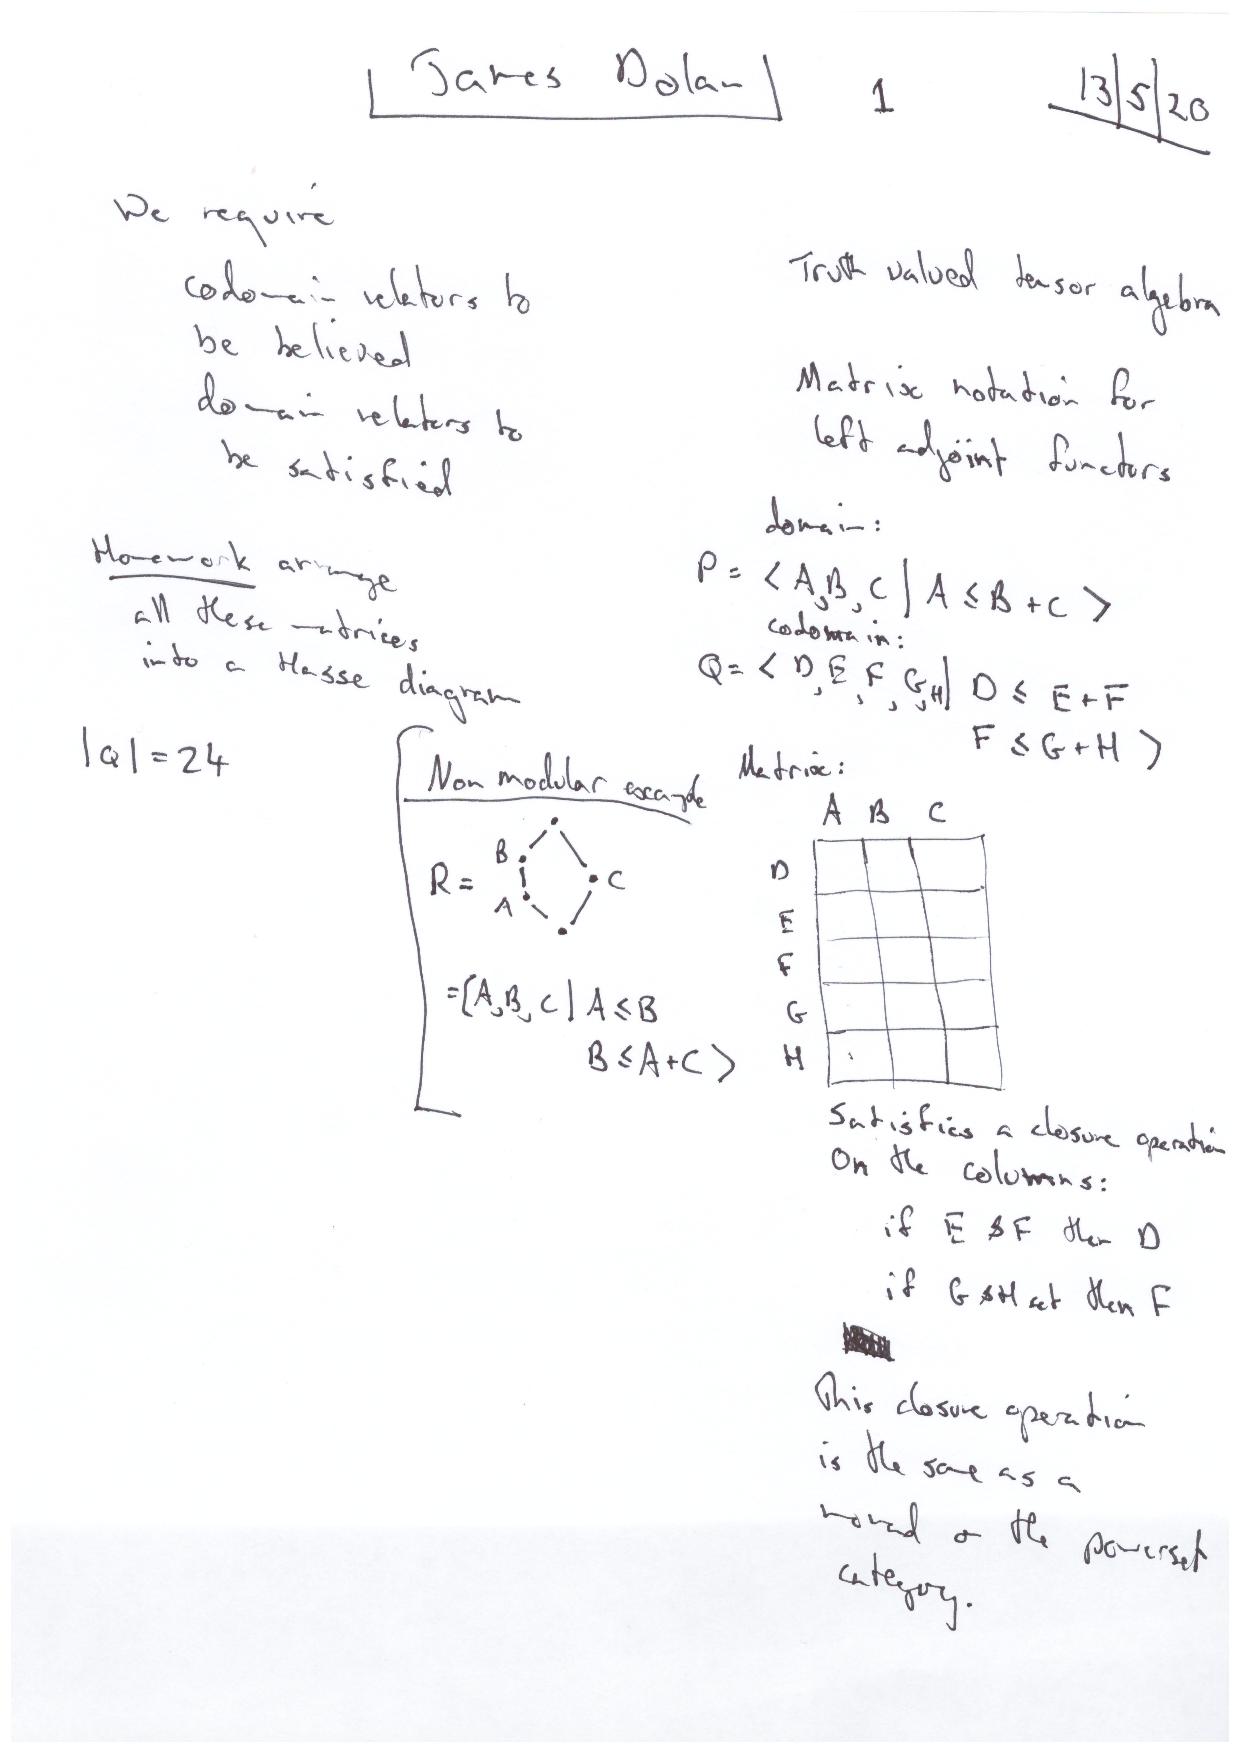 James Dolan
1
13/5/20
We require
codomain relators to
be believed
domain relators to
be satisfied
Homework arrange
all these matrices
into a Hasse diagram
|Q| = 24
Non modular example
R =
B
A
C
= <A, B, C | A ≤ B
B ≤ A + C >
Truth valued tensor algebra
Matrix notation for
left adjoint functors
domain:
P = < A, B, C | A ≤ B + C >
codomain:
Q = < D, E, F, G, H | D ≤ E + F
F ≤ G + H >
Matrix:
A B C
D
E
F
G
H
Satisfies a closure operation
On the columns:
if E & F then D
if G & H set then F
This closure operation
is the same as a
monad on the powerset
category.